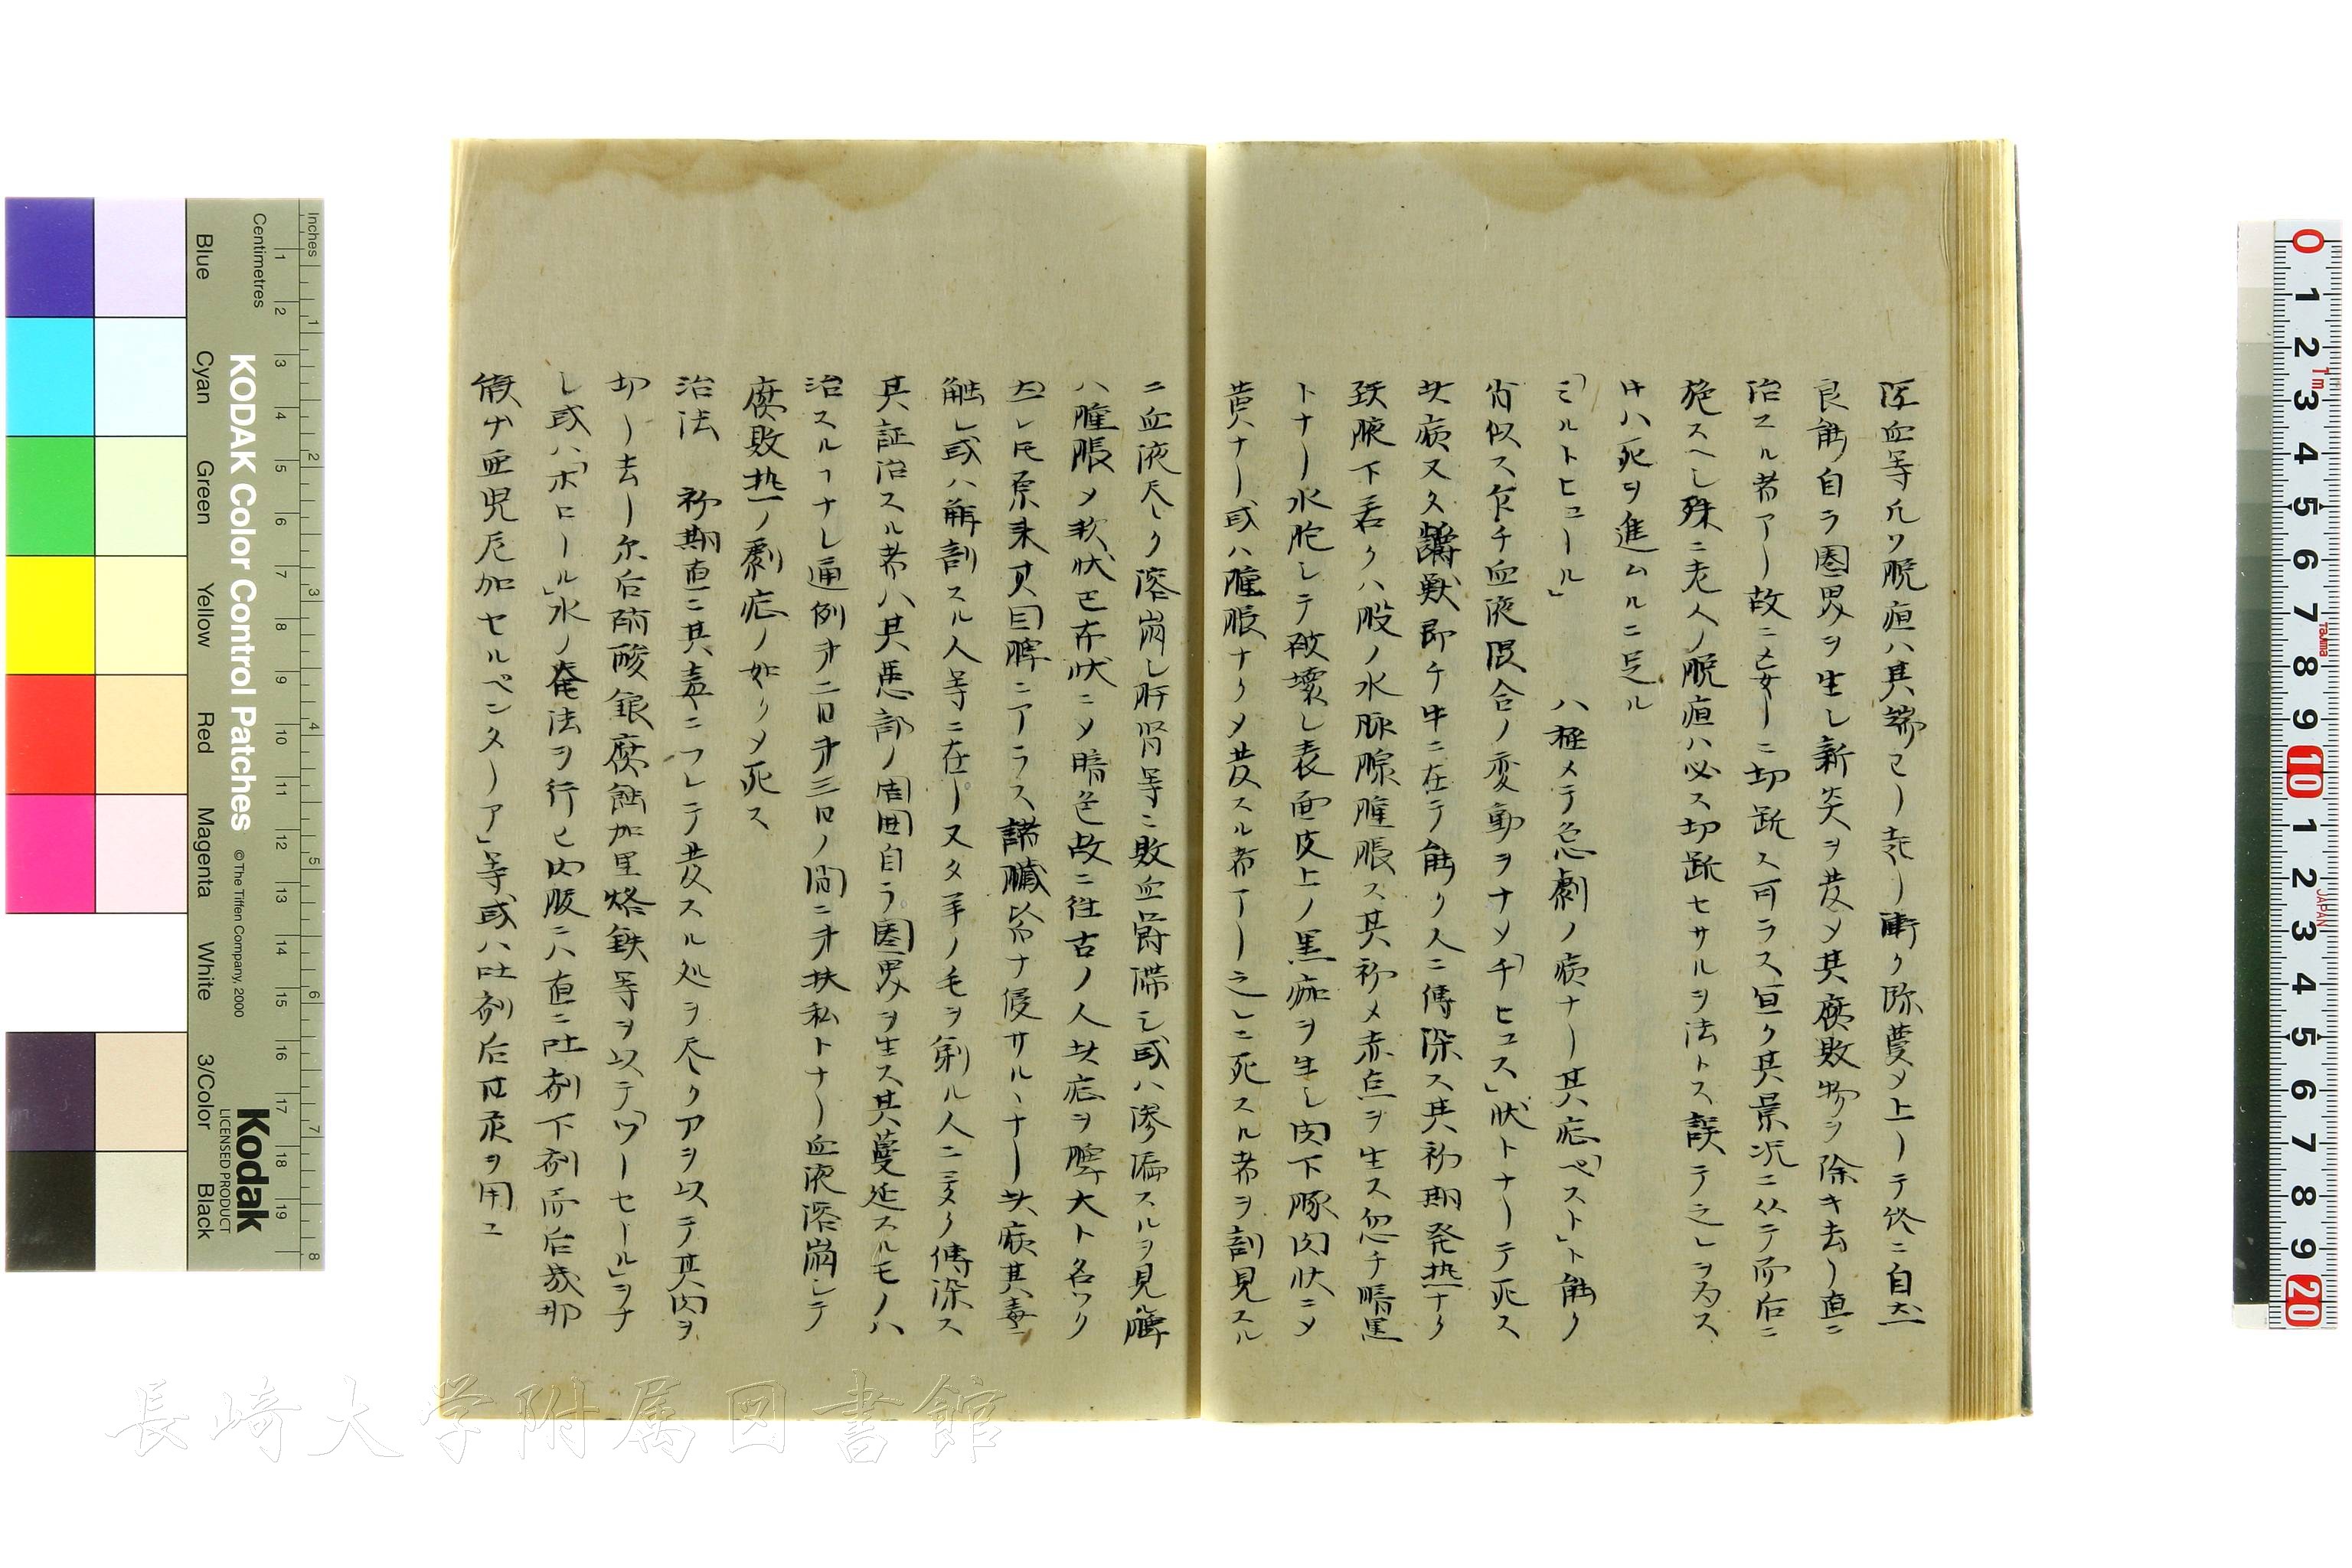 圧血等凡ソ脱疽ハ其端已ー去ー漸ク弥蔓メ上ーテ終ニ自然
良能自ラ圏界ヲ生シ新炎ヲ発メ其腐敗物ヲ除キ去ー直ニ
治スル者アー故ニ妄ーニ切断ス可ラス宜ク其景况ニ从テ而后ニ
施スヘシ殊ニ老人ノ脱疽ハ必ス切断セサルヲ法トス誤テ之レヲ為ス
片ハ死ヲ進ムルニ足ル
「ミルトヒュール」 ハ極メテ急劇ノ病ナー其症「ペスト」ト能ク
肖似ス乍チ血液俱合ノ変動ヲナメ「チヒュス」状トナーテ死ス
此病又タ齝獣即チ牛ニ在テ能ク人ニ傳染ス其初期発热ナク
頚腋下若クハ股ノ水脈腺腫脹ス其初メ赤点ヲ生ス忽チ暗黒
トナー水胞シテ破壊シ表面皮上ノ黒痂ヲ生シ肉下豚肉状ニメ
黄ナー或ハ腫脹ナクメ発スル者アー之レニ死スル者ヲ剖見スル
ニ血液尽ク溶崩シ肝肾等ニ敗血欝滞シ或ハ滲漏スルヲ見ル脾
ハ腫脹メ軟状已ニ赤状ニメ暗色故ニ往古ノ人此症ヲ脾大ト名ツク
然レ圧原来真因脾ニアラス諸臓皆ナ侵サル丶ナー此病其毒ニ
触レ或ハ解剖スル人等ニ在ー又タ羊ノ毛ヲ剃ル人ニ云多ク傳染ス
其証治スル者ハ其悪部ノ周囲自ラ圏界ヲ生ス其蔓延スルモノハ
治スルヿナシ通例才二日才三日ノ間ニ才扶私トナー血液溶崩シテ
腐敗热ノ劇症ノ如クメ死ス
治法 初期直ニ其毒ニフレテ発スル処ヲ尽ク刀ヲ以テ其肉ヲ
切ー去ー尓后硝酸銀腐蝕加里烙鉄等ヲ以テ「ワーセール」ヲナ
シ或ハ「ホロール」水ノ奄法ヲ行ヒ内服ニハ直ニ吐剤下剤而后幾那
健ナ亜児尼加セルペンターア」等或ハ吐剤后甘汞ヲ用ユ
KODAK Color Control Patches
©The Tiffen Company, 2000
Kodak
LICENSED PRODUCT
Inches
Centimetres
Blue
Cyan
Green
Yellow
Red
Magenta
White
3/Color
Black
長崎大学附属図書館